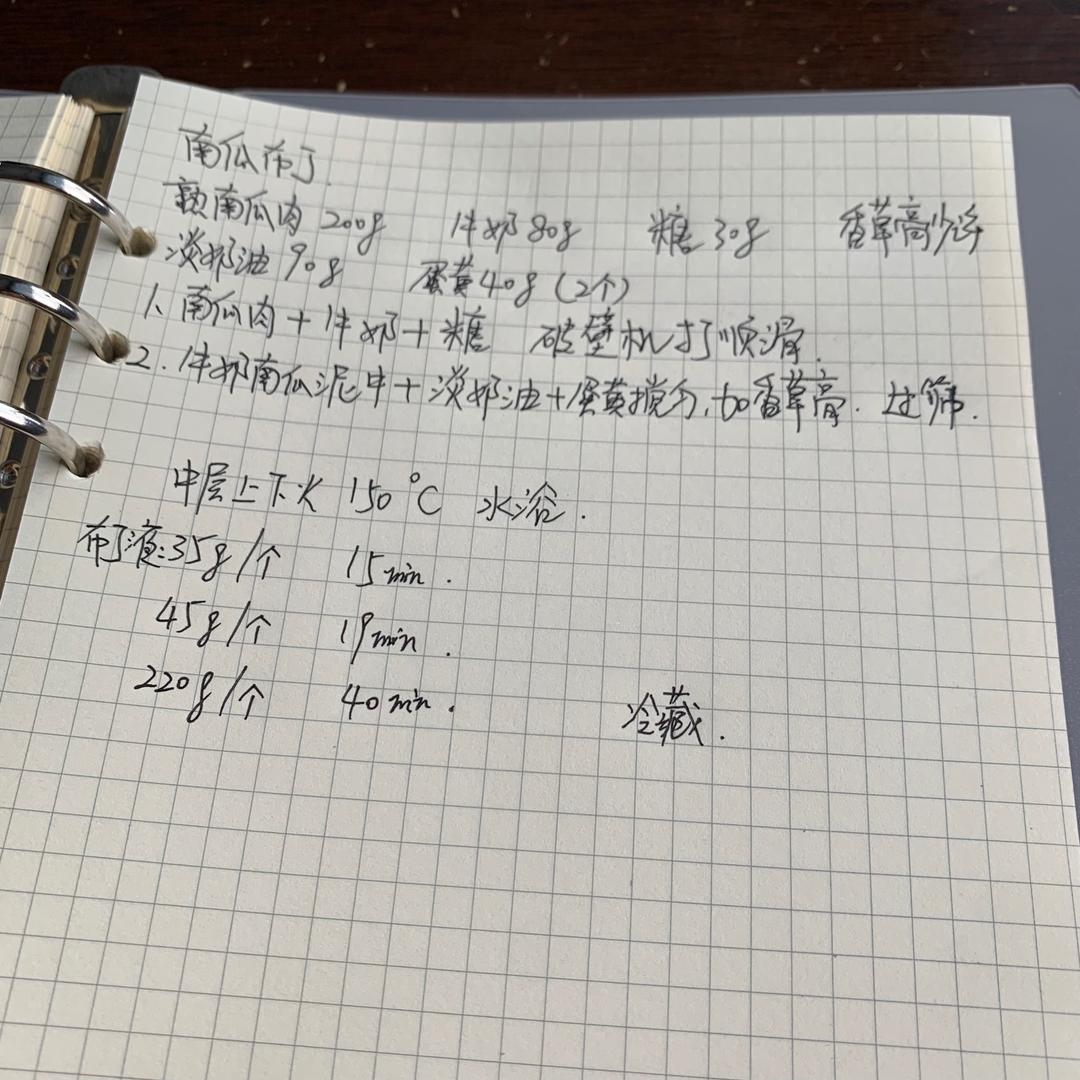 南瓜布丁.
熟南瓜肉 200g 牛奶 80g 糖 30g 香草膏少许
淡奶油 90g 蛋黄 40g (2个)
1. 南瓜肉 + 牛奶 + 糖 破壁机打顺滑.
2. 牛奶南瓜泥中 + 淡奶油 + 蛋黄搅匀, 加香草膏. 过筛.
中层上下火 150°C 水浴.
布丁液: 35g/个 15min.
45g/个 19min.
220g/个 40min. 冷藏.